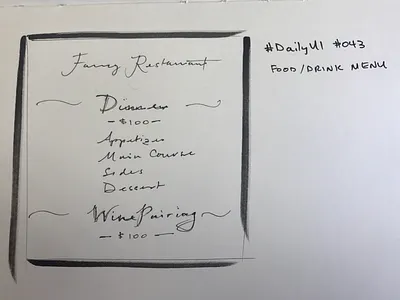 Fancy Restaurant
Dinner
- $100 -
Appetizer
Main Course
Sides
Dessert
Wine Pairing
- $100 -
#DailyUI #043
FOOD/DRINK MENU